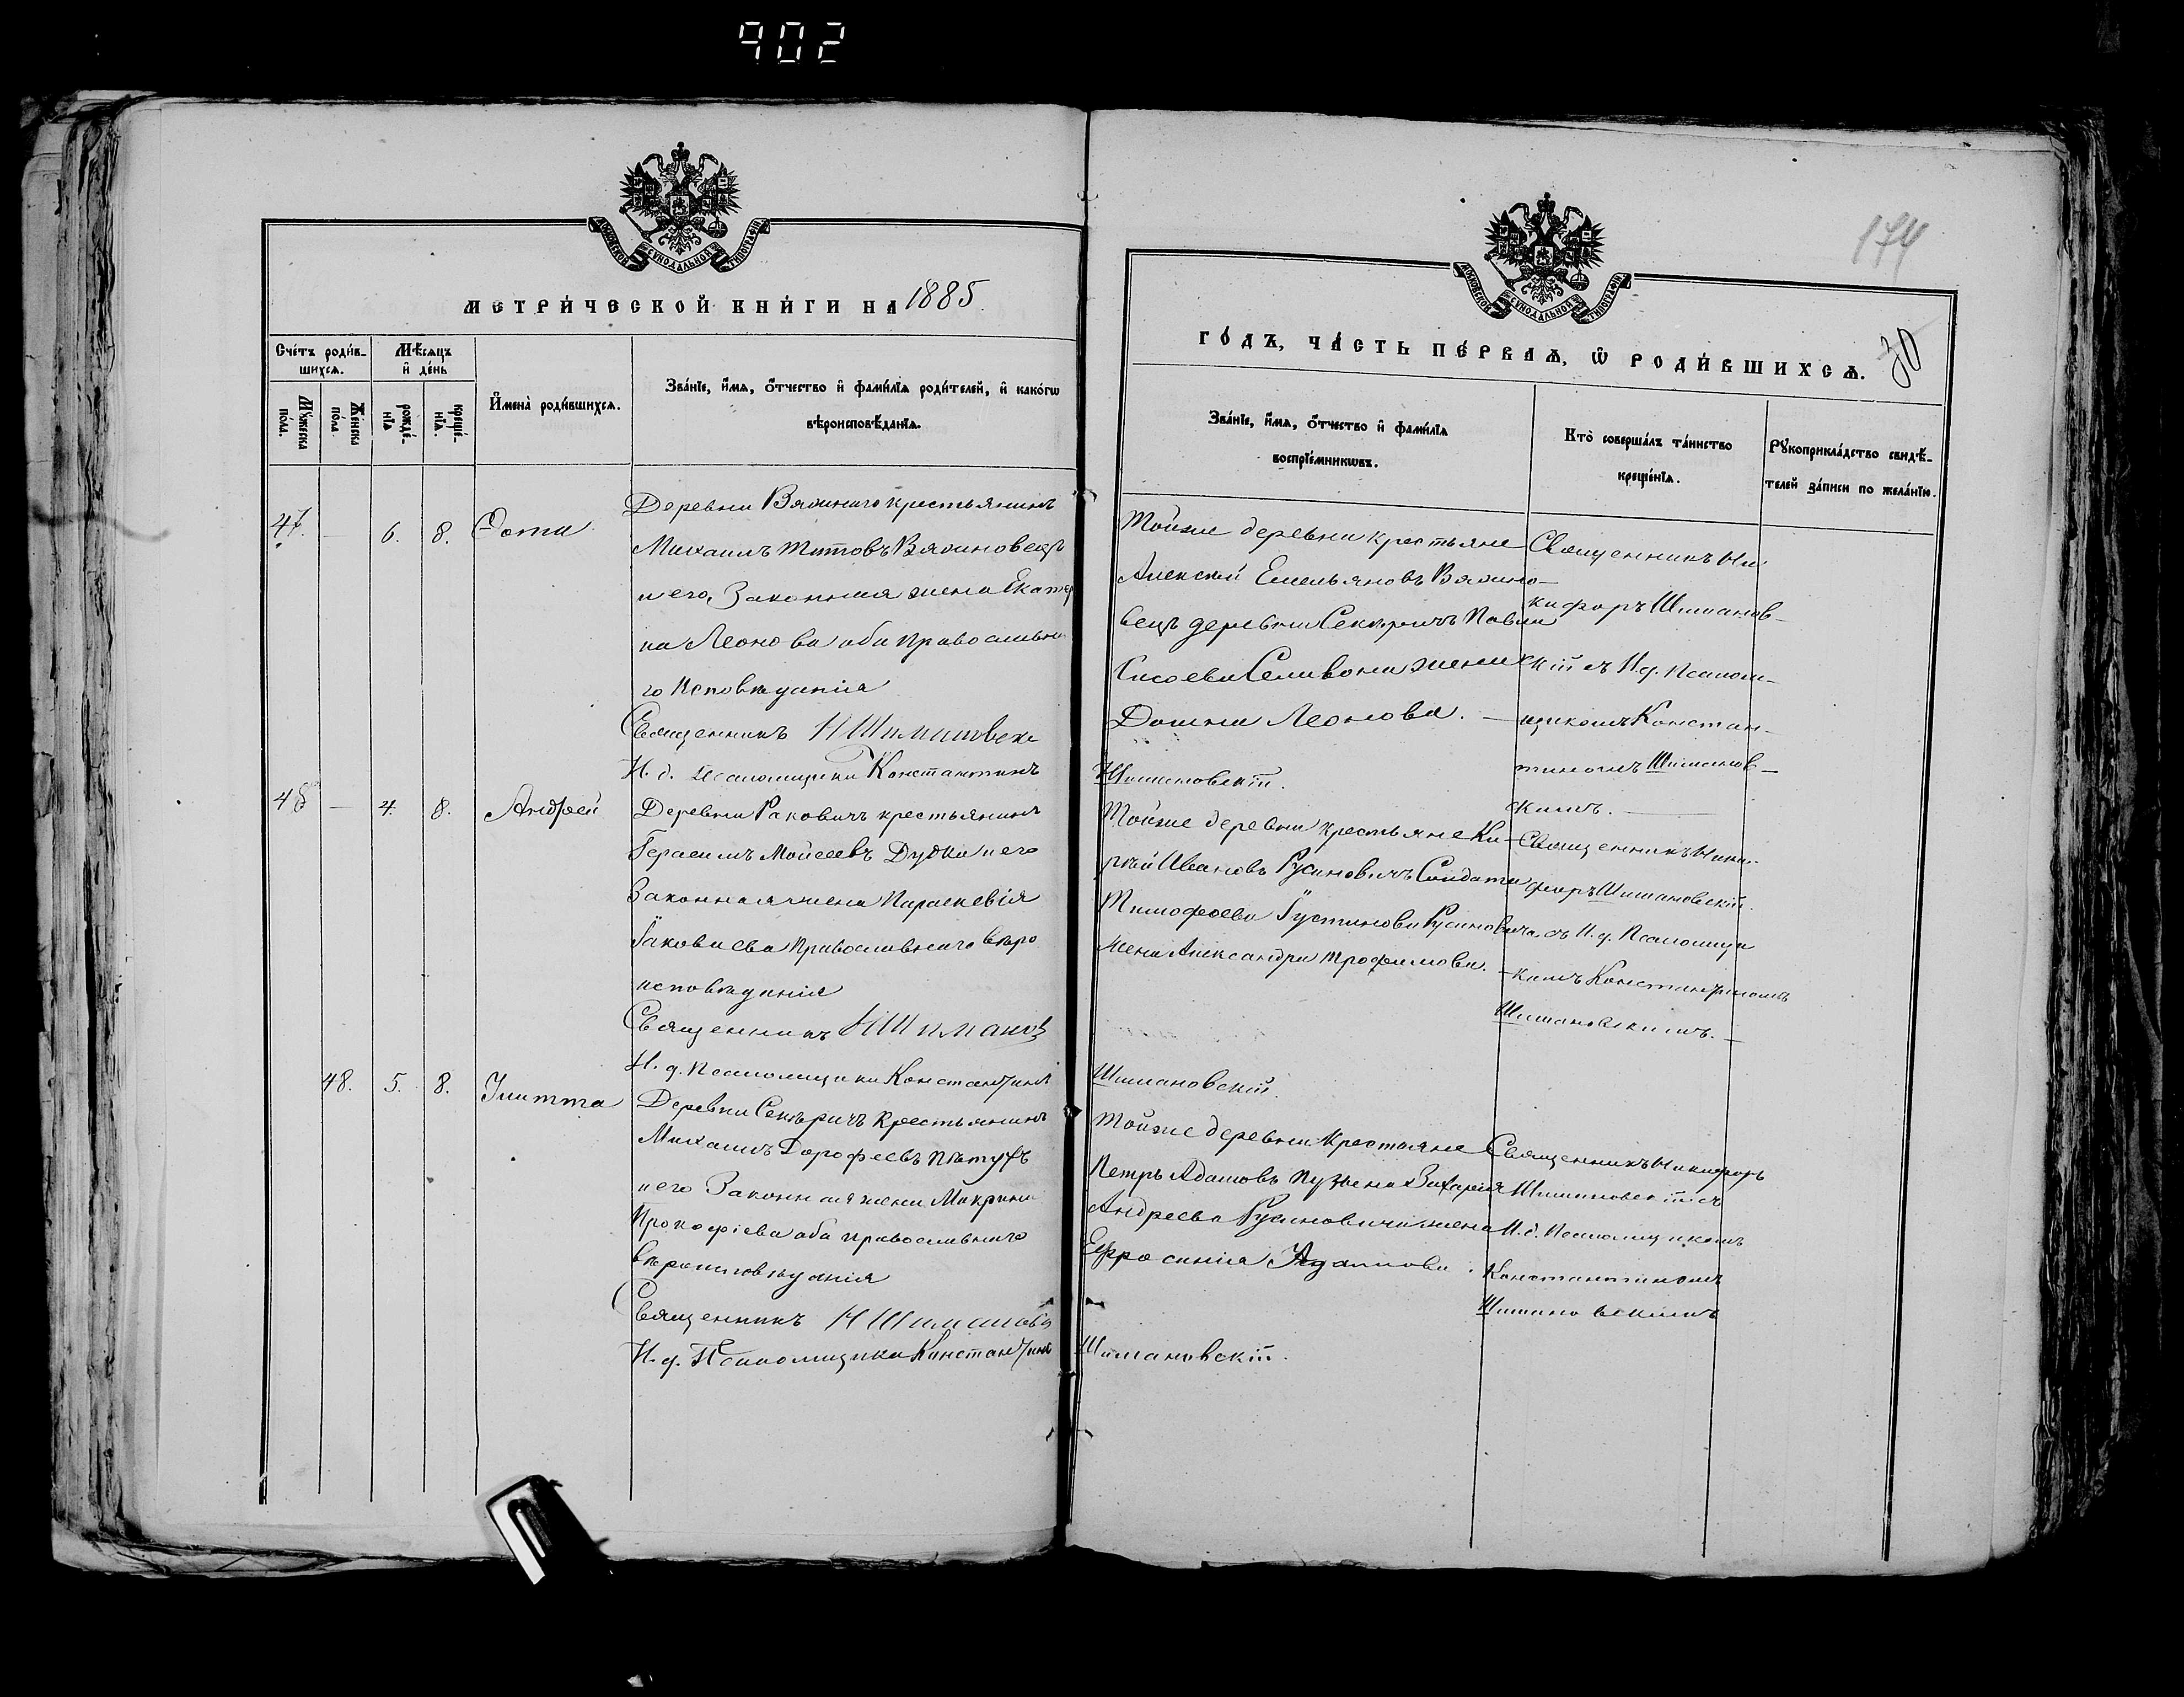 902
МОСКОВСКОЙ СѴНОДАЛЬНОЙ ТИПОГРАФІИ
МЕТРИ́ЧЕСКОЙ КНИ́ГИ НА 1885.
Сче́тъ роди́в-
шихсѧ.
Мѣ́сѧцъ
и҆ де́нь
Мꙋ́жеска
по́ла.
Же́нска
по́ла.
рожде́-
нїѧ
креще́-
нїѧ.
И҆мена̀ роди́вшихсѧ.
Зва́нїе, и҆́мѧ, ѻ҆́тчество и҆ фами́лїѧ роди́телей, и҆ како́гѡ
вѣроисповѣ́данїѧ.
47. — 6. 8. Фома
Деревни Вячинаго крестьянинъ
Михаилъ Титовъ Вячиновецъ
и его, Законная жена Екатер
на Леонова оба Православна
го Исповѣданія
Священникъ Н Шиманов
И. д. Псаломщика Константинъ
48 — 4. 8. Андрей
Деревни Раковичъ крестьянинъ
Герасимъ Моисеевъ Дудка и его
Законная жена Параскевія
Іаковлева Православнаго вѣро
исповѣданія
Священникъ Н Шиманов
И. д. Псаломщика Константинъ
48. 5. 8. Улитта
Деревни Секеричъ Крестьянинъ
Михаилъ Дорофеевъ Пѣтухъ
и его Законная жена Макрина
Прокофіева оба православнаго
вѣроисповѣданія
Священникъ Н Шиманов
И. д. Псаломщика Константинъ
174
МОСКОВСКОЙ СѴНОДАЛЬНОЙ ТИПОГРАФІИ
ГО́ДЪ, ЧА́СТЬ ПЕ́РВАѦ, Ѡ҆ РОДИ́ВШИХСѦ.
70
Зва́нїе, и҆́мѧ, ѻ҆́тчество и҆ фами́лїѧ
воспрїе́мникѡвъ.
Кто̀ соверша́лъ та́инство
креще́нїѧ.
Рꙋкоприкла́дство свидѣ́-
телей за́писи по жела́нїю.
Тойже деревни крестьяне
Алексѣй Емельяновъ Вячино-
вецъ деревни Секеричъ Павла
Сисоева Селивона жена
Домна Леонова. —
Шимановскій.
Священникъ Ни
кифоръ Шиманов-
скій съ И. д. Псалом-
щикомъ Констан-
тиномъ Шиманов-
скимъ. —
Тойже деревни крестьяне Ки-
рѣй Ивановъ Русиновичъ Солдата
Тимофеева Густинова Русиновича
Жена Александра Трофимова. —
Шимановскій.
Священникъ Ники-
форъ Шимановскій.
съ И. д. Псаломщи
комъ Константиномъ
Шимановскимъ. —
Тойже деревни Крестьяне
Петръ Адамовъ Захарія
Андреева Русиновича жена
Ефросинія Адамова.
Шимановскій.
Священникъ Никифоръ
Шимановскій съ
И. д. Псаломщикомъ
Константиномъ
Шимановскимъ